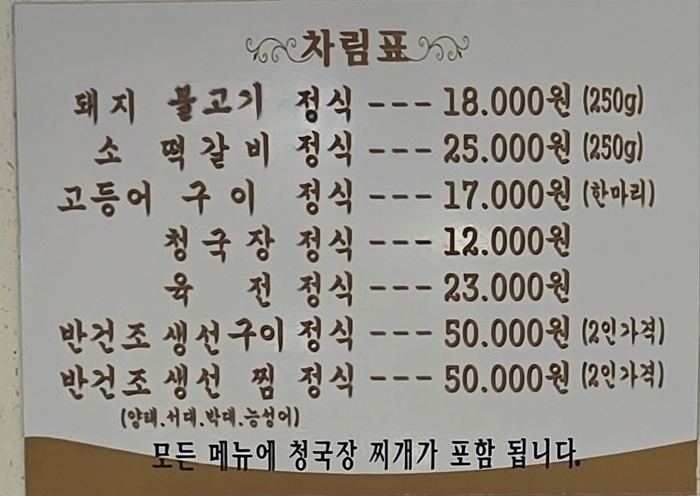 차림표
돼지 불고기 정식 --- 18.000원 (250g)
소 떡갈비 정식 --- 25.000원 (250g)
고등어 구이 정식 --- 17.000원 (한마리)
청국장 정식 --- 12.000원
육전 정식 --- 23.000원
반건조 생선구이 정식 --- 50.000원 (2인가격)
반건조 생선 찜 정식 --- 50.000원 (2인가격)
(양태.서대.박대.능성어)
모든 메뉴에 청국장 찌개가 포함 됩니다.